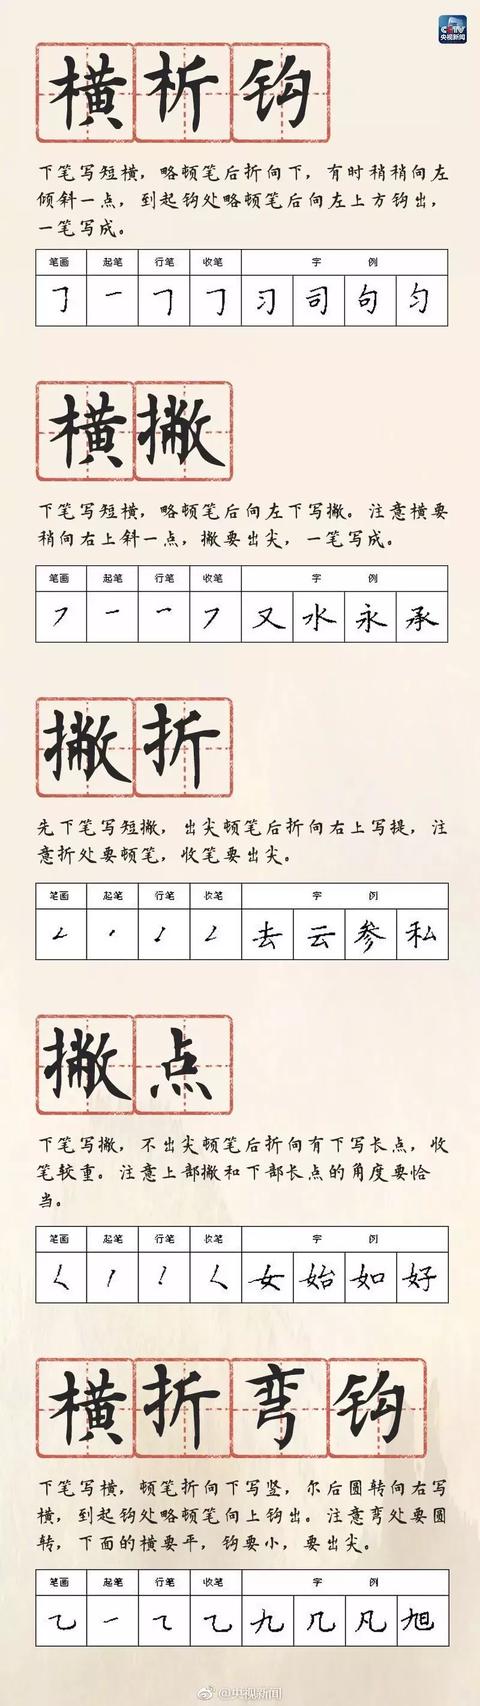 CCTV
央视新闻
横析钩
下笔写短横，略顿笔后折向下，有时稍稍向左
倾斜一点，到起钩处略顿笔后向左上方钩出，
一笔写成。
笔画 起笔 行笔 收笔 字 例
㇆ 一 ㇕ ㇆ 习 司 句 匀
横撇
下笔写短横，略顿笔后向左下写撇。注意横要
稍向右上斜一点，撇要出尖，一笔写成。
笔画 起笔 行笔 收笔 字 例
㇇ 一 乛 ㇇ 又 水 永 承
撇折
先下笔写短撇，出尖顿笔后折向右上写提，注
意折处要顿笔，收笔要出尖。
笔画 起笔 行笔 收笔 字 例
㇜ 去 云 参 私
撇点
下笔写撇，不出尖顿笔后折向有下写长点，收
笔较重。注意上部撇和下部长点的角度要恰
当。
笔画 起笔 行笔 收笔 字 例
㇛ 女 始 如 好
横折弯钩
下笔写横，顿笔折向下写竖，尔后圆转向右写
横，到起钩处略顿笔向上钩出。注意弯处要圆
转，下面的横要平，钩要小，要出尖。
笔画 起笔 行笔 收笔 字 例
乙 一 ㇍ 乙 九 几 凡 旭
@央视新闻